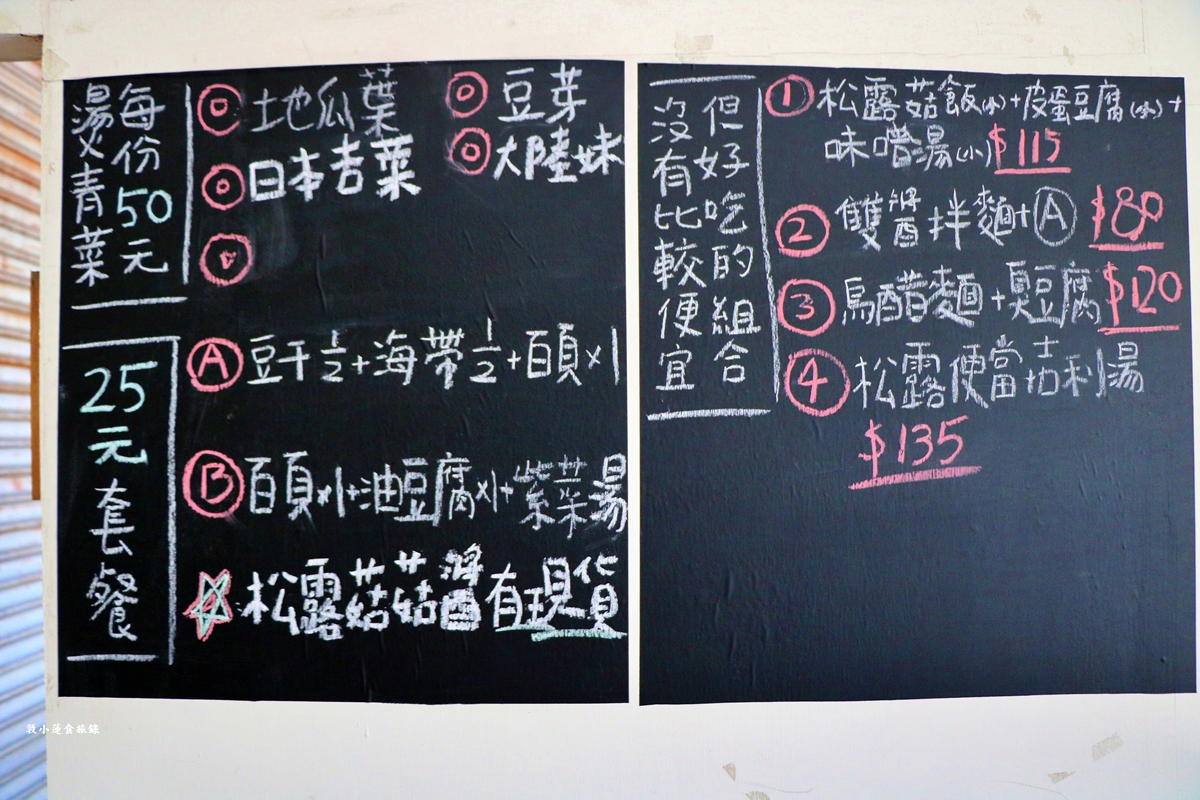 每份50元
燙青菜
土地瓜葉
豆芽
日本吉菜
大陸妹
25元套餐
A 豆干½+海帶½+百頁×1
B 百頁×1+油豆腐×1+紫菜湯
松露菇菇醬有現貨
但好吃的組合
沒有比較便宜
① 松露菇飯(小)+皮蛋豆腐(小)+
味噌湯(小) $115
② 雙醬拌麵+A $80
③ 烏醋麵+臭豆腐 $120
④ 松露便當吉利湯
$135
穀小蓮食旅錄